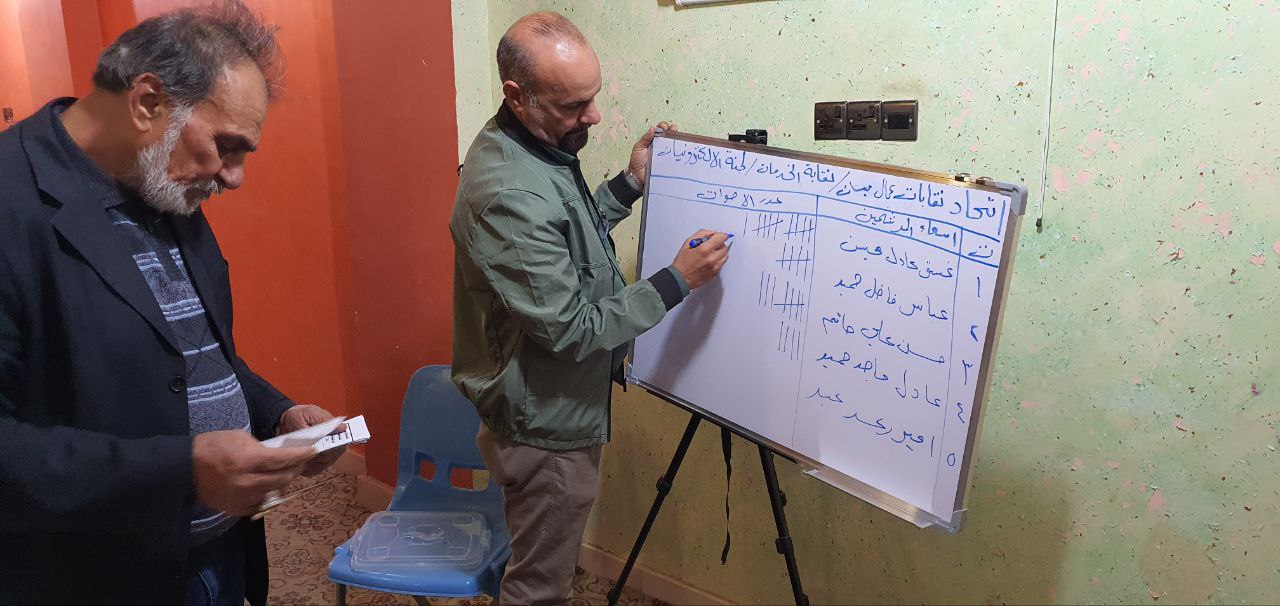 اتحاد نقابات عمال ميسان / نقابة الخدمات / لجنة الالكترونيات
ت اسماء المرشحين عدد الاصوات
١ غسق عادل محيسن
٢ عباس فاضل حميد
٣ حسن علي حاتم
٤ عادل ماجد حميد
٥ امير عبد